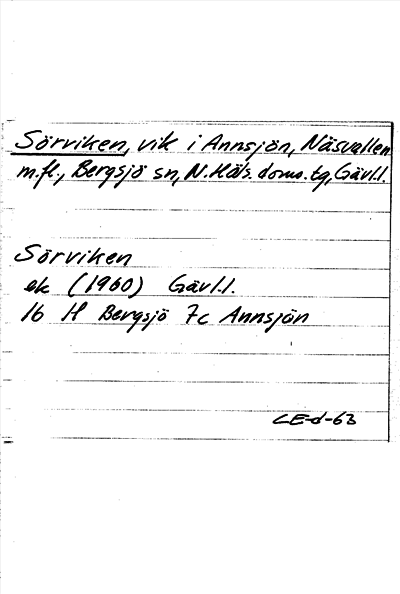 Sörviken, vik i Annsjön, Näsvallen
m.fl., Bergsjö sn, N. Häls. doms.tg, Gävl.l.
Sörviken
ek (1960) Gävl.l.
16 H Bergsjö 7c Annsjön
CE-d-63